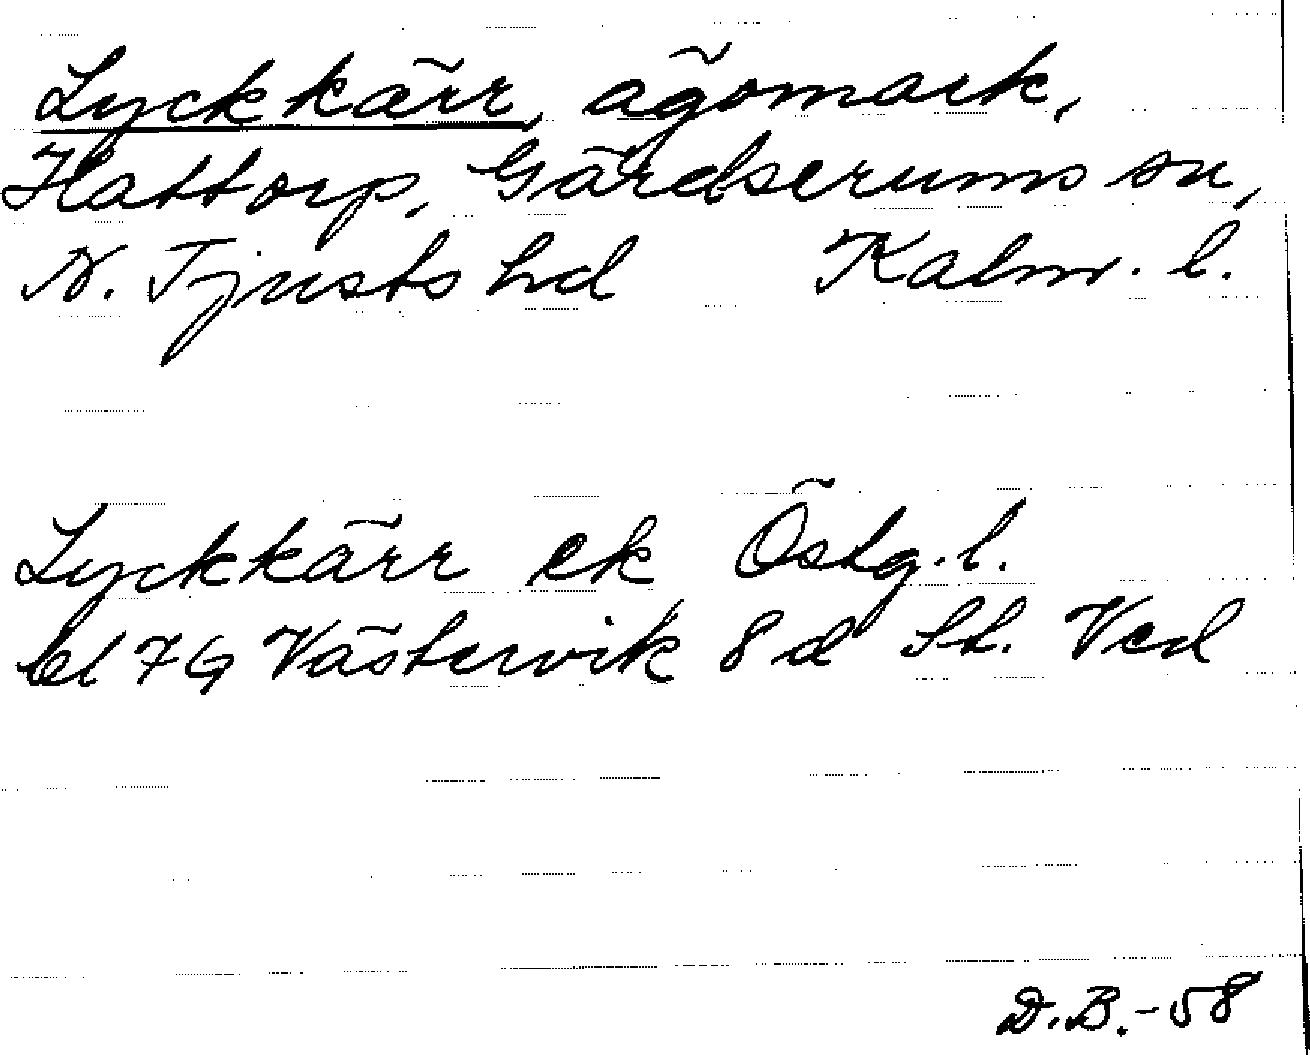 Lyckkärr, ägomark,
Hattorp, Gärdserums sn,
N. Tjusts hd Kalm. l.
Lyckkärr ek Östg. l.
bl 7G Västervik 8d St. Ved
D.B.-58